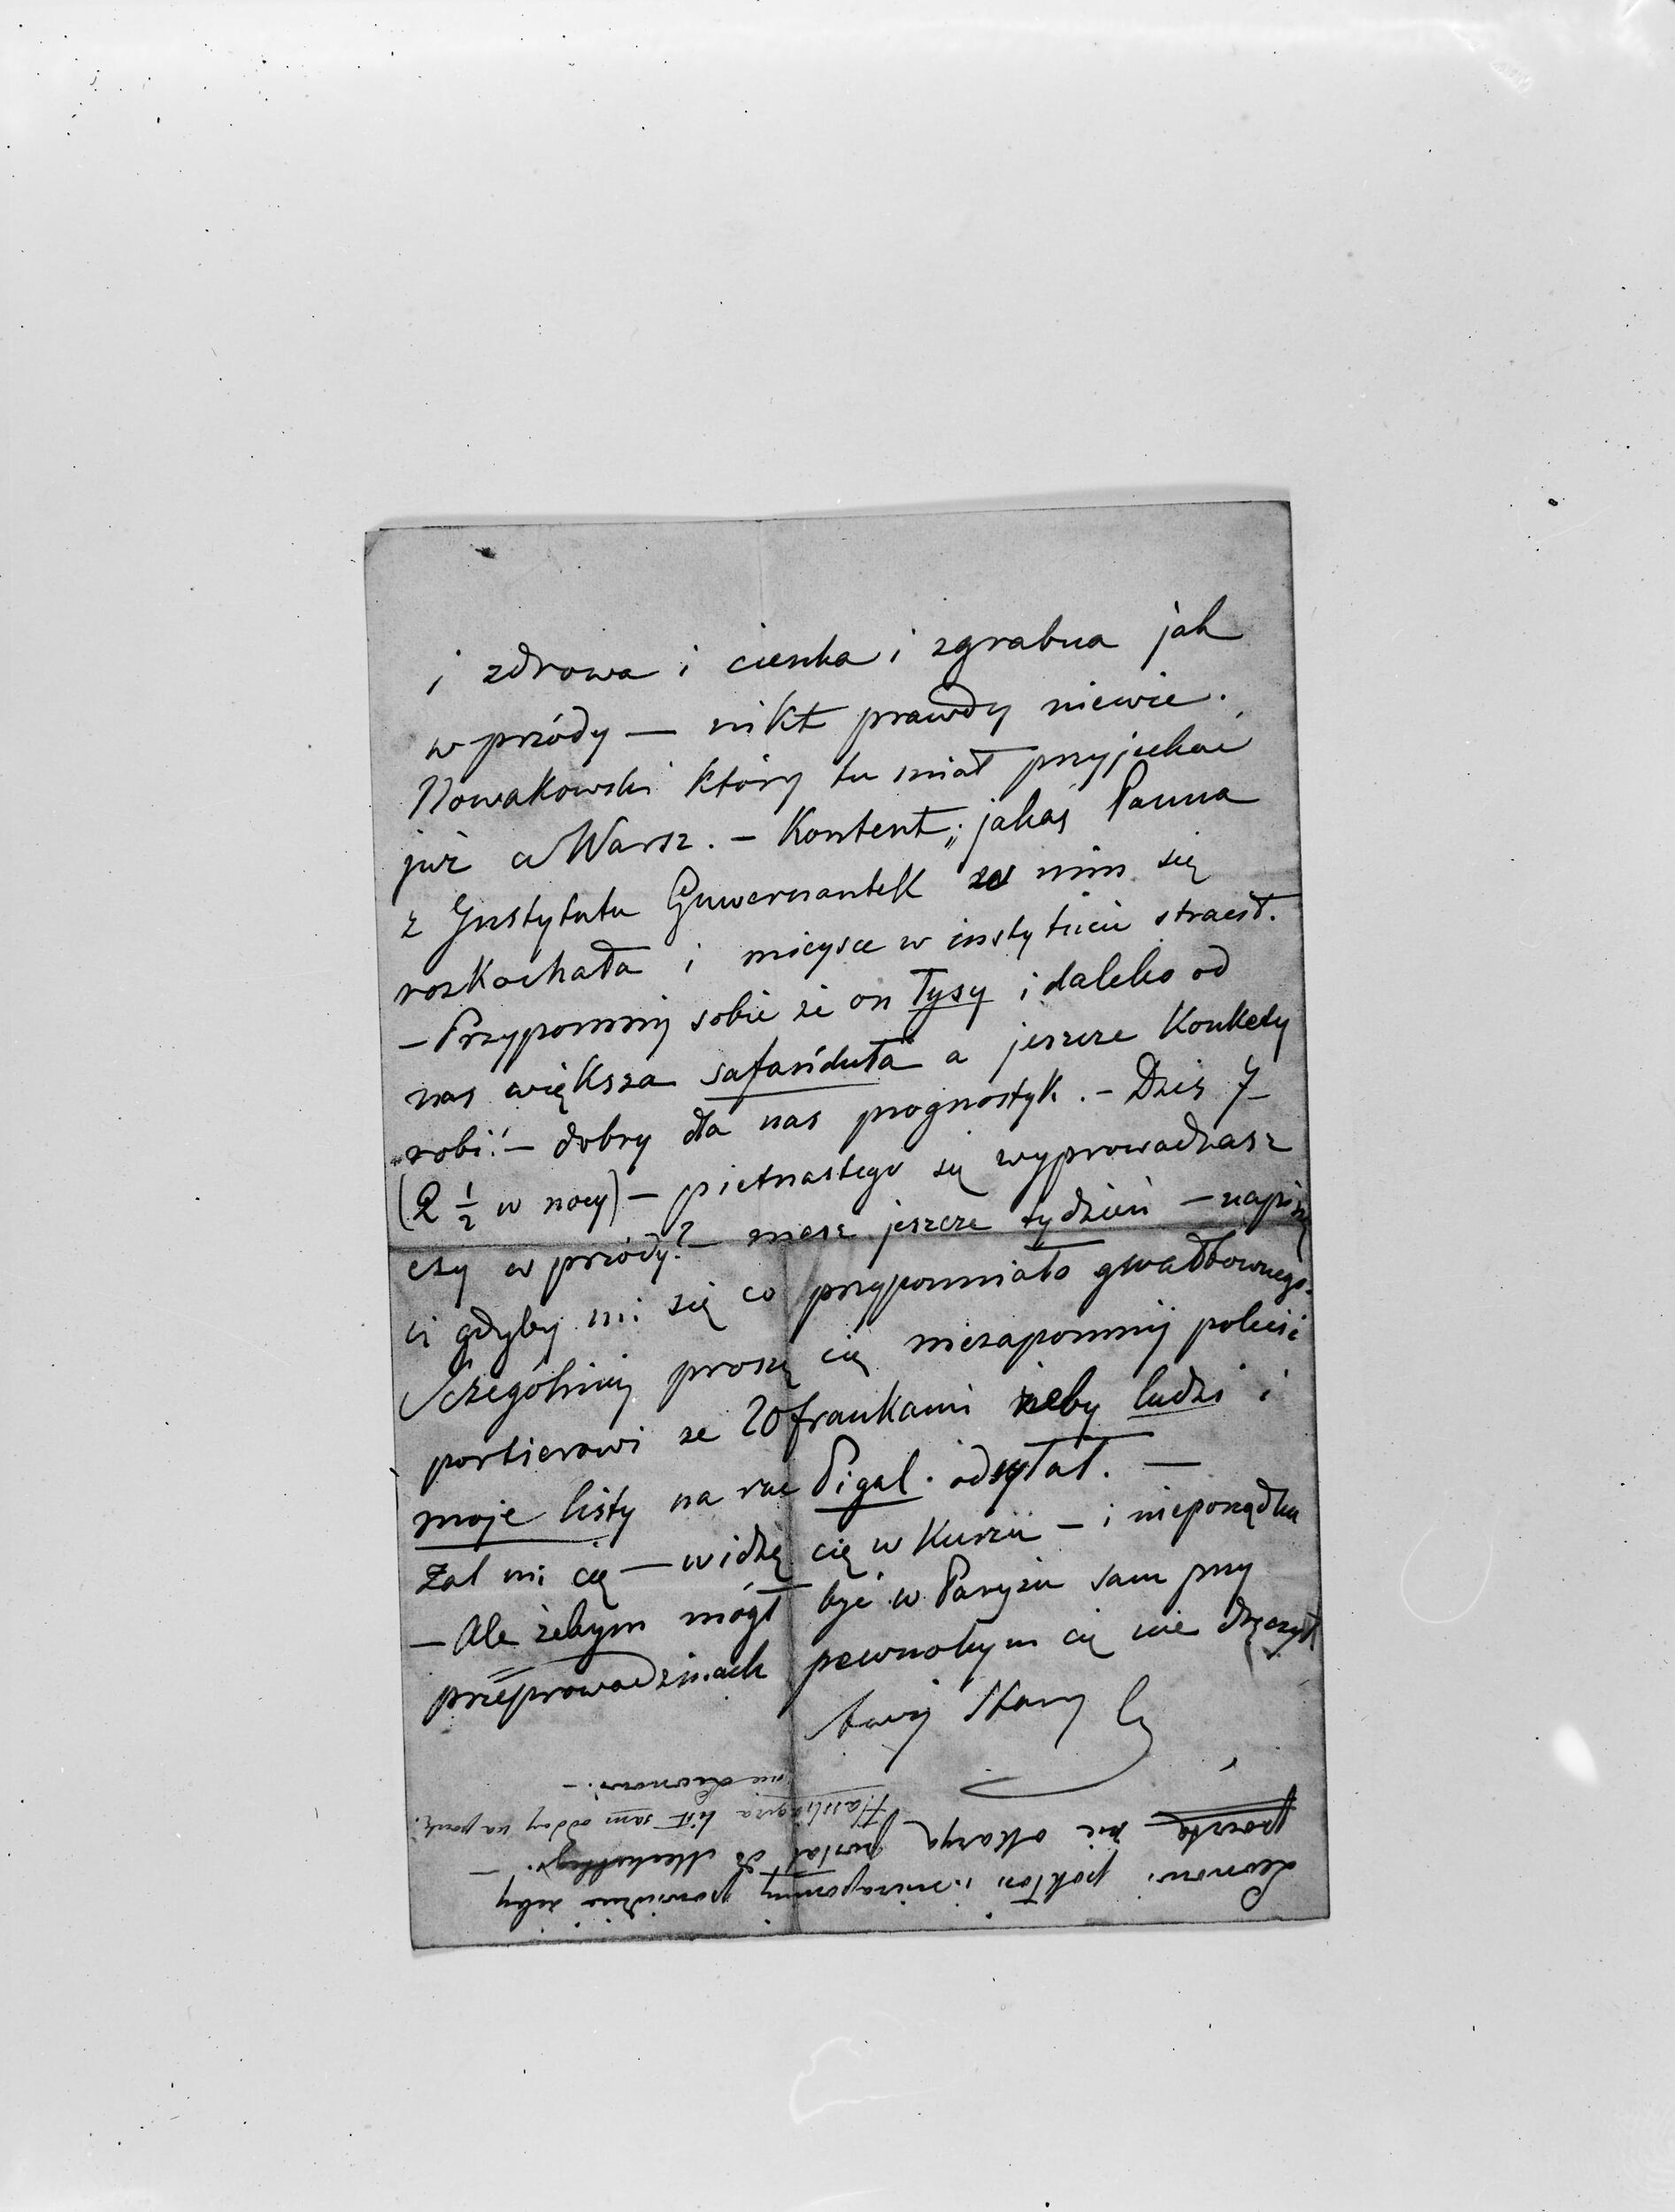 i zdrowa i cienka i zgrabna jak
w przódy — nikt prawdy niewie.
Nowakowski który tu miał przyjechać
już w Warsz. — Kontent; jakaś Panna
z Instytutu Guwernantek w nim się
rozkochała i mieysce w instytucie stracił.
— Przypomnij sobie że on łysy i daleko od
nas większa safanduła a jeszcze Konkety
robi! — dobry dla nas prognostyk. — Dziś 7
(2 ½ w nocy) — pietnastego się wyprowadzasz
czy w przódy? — masz jeszcze tydzień — napiszę
ci gdyby mi się co przypomniało gwałtownego.
Szczególniej proszę cię niezapomnij polecić
portierowi ze 20 frankami żeby ludzi i
moje listy na rue Pigal. odsyłał. —
Żal mi cię — widzę cię w Kurzu — i nieporządku
— Ale żebym mógł być w Paryżu sam przy
przeprowadzinach pewnobym cię nie dręczył
twój Stary
Leonowi pokłon i niezapomnij powiedzieć żeby
powstę nie okazyą posłał do
list sam oddaj na pocztę.
nie Leonowi. —